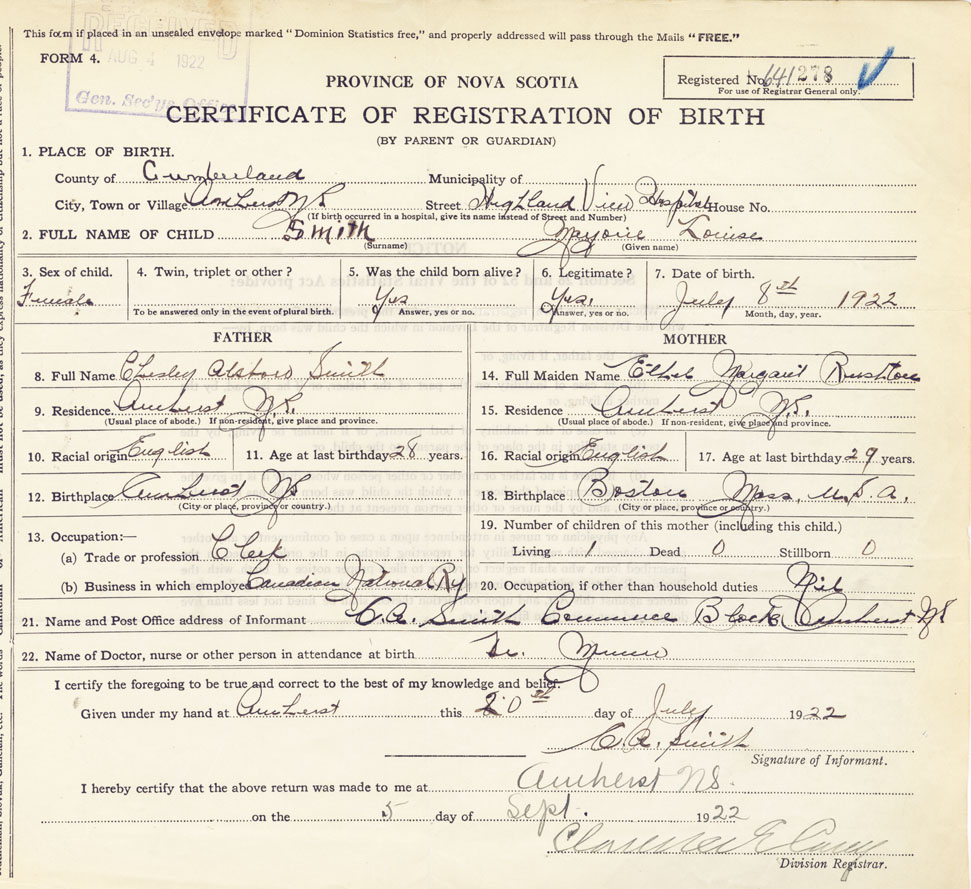 This form if placed in an unsealed envelope marked "Dominion Statistics free," and properly addressed will pass through the Mails "FREE."
RECEIVED
AUG 4 1922
Gen. Sec'ys Office
FORM 4.
PROVINCE OF NOVA SCOTIA
Registered No. 641278
For use of Registrar General only.
CERTIFICATE OF REGISTRATION OF BIRTH
(BY PARENT OR GUARDIAN)
1. PLACE OF BIRTH.
County of Cumberland Municipality of
City, Town or Village Amherst N S Street Highland View Hospital House No.
(If birth occurred in a hospital, give its name instead of Street and Number)
2. FULL NAME OF CHILD Smith Marjorie Louise
(Surname) (Given name)
3. Sex of child. 4. Twin, triplet or other? 5. Was the child born alive? 6. Legitimate? 7. Date of birth.
Female Yes Yes. July 8th 1922
To be answered only in the event of plural birth. Answer, yes or no. Answer, yes or no. Month, day, year.
FATHER MOTHER
8. Full Name Chesley Smith 14. Full Maiden Name Ethel Margaret Rushton
9. Residence Amherst N.S. 15. Residence Amherst N.S.
(Usual place of abode.) If non-resident, give place and province. (Usual place of abode.) If non-resident, give place and province.
10. Racial origin English 11. Age at last birthday 28 years. 16. Racial origin English 17. Age at last birthday 29 years.
12. Birthplace Amherst NS 18. Birthplace Boston Mass. U.S.A.
(City or place, province or country.) (City or place, province or country.)
13. Occupation:— 19. Number of children of this mother (including this child.)
(a) Trade or profession Clerk Living 1 Dead 0 Stillborn 0
(b) Business in which employed Canadian National Ry 20. Occupation, if other than household duties Nil
21. Name and Post Office address of Informant C.A. Smith Commerce Block Amherst NS
22. Name of Doctor, nurse or other person in attendance at birth Dr. Munro
I certify the foregoing to be true and correct to the best of my knowledge and belief.
Given under my hand at Amherst this 20th day of July 1922
C.A. Smith
Signature of Informant.
I hereby certify that the above return was made to me at Amherst NS.
on the 5 day of Sept. 1922
Division Registrar.